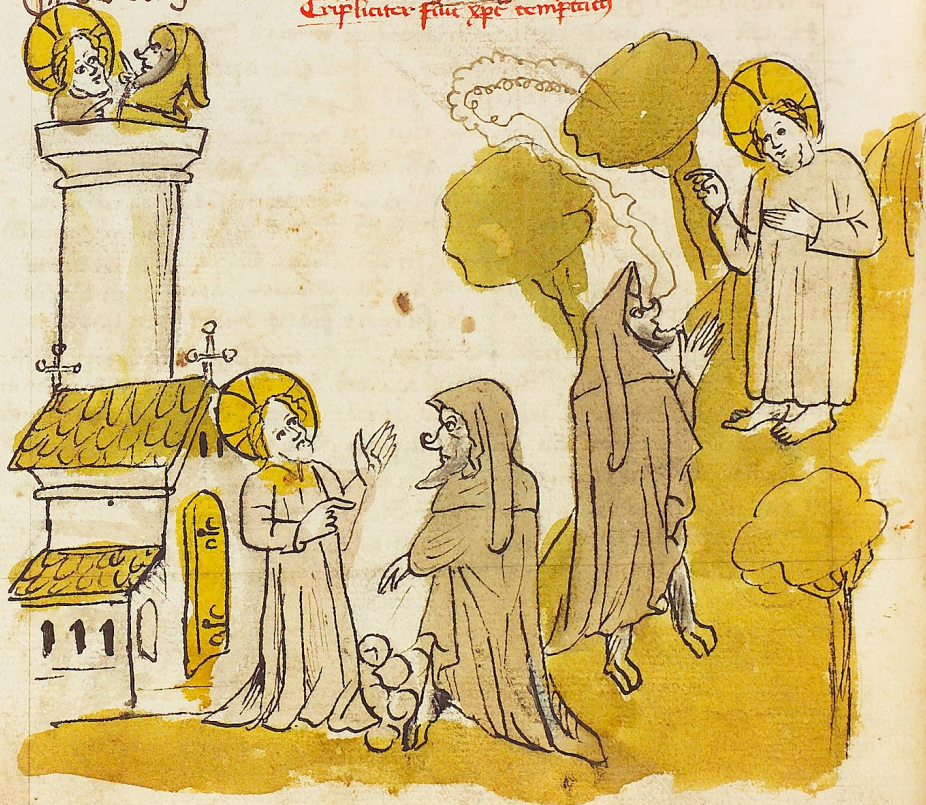 Tripliciter fuit xp̄c temptatꝰ